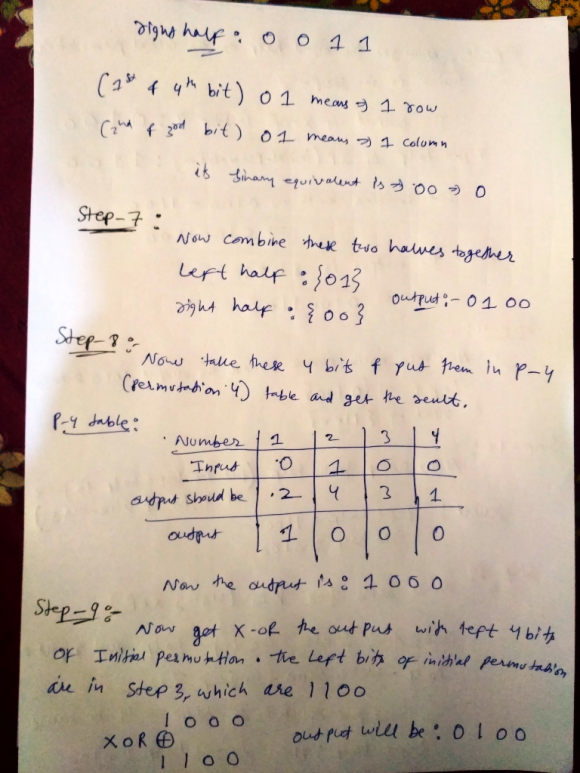 right half : 0 0 1 1
(1st & 4th bit) 01 means ⇒ 1 row
(2nd & 3rd bit) 01 means ⇒ 1 column
its binary equivalent is ⇒ 00 ⇒ 0
Step-7 :
Now combine these two halves together
Left half : {01}
right half : {00} output :- 01 00
Step-8 :-
Now take these 4 bits & put them in P-4
(Permutation 4) table and get the result.
P-4 table :
Number 1 2 3 4
Input 0 1 0 0
output should be 2 4 3 1
output 1 0 0 0
Now the output is : 1 0 0 0
Step-9 :-
Now get X-OR the output with left 4 bits
of Initial permutation. The left bits of initial permutation
are in step 3, which are 1100
1 0 0 0
XOR ⊕ output will be : 0 1 0 0
1 1 0 0